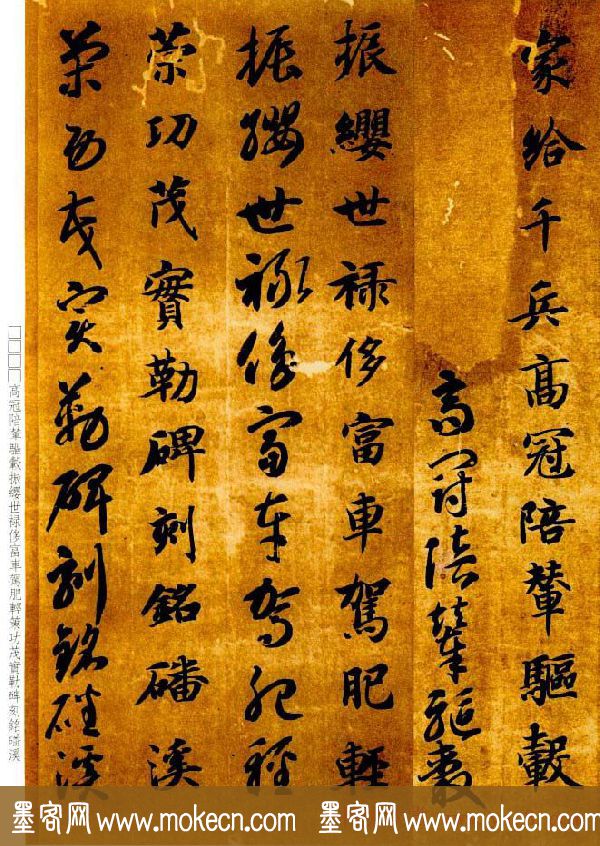 家給千兵高冠陪輦驅轂
高冠陪輦驅轂
振纓世禄侈富車駕肥輕
振纓世禄侈富車駕肥輕
策功茂實勒碑刻銘磻溪
策功茂實勒碑刻銘磻溪
□□□□高冠陪輦驅轂振纓世禄侈富車駕肥輕策功茂實勒碑刻銘磻溪
墨客网 www.mokecn.com 墨客网 www.mokecn.com